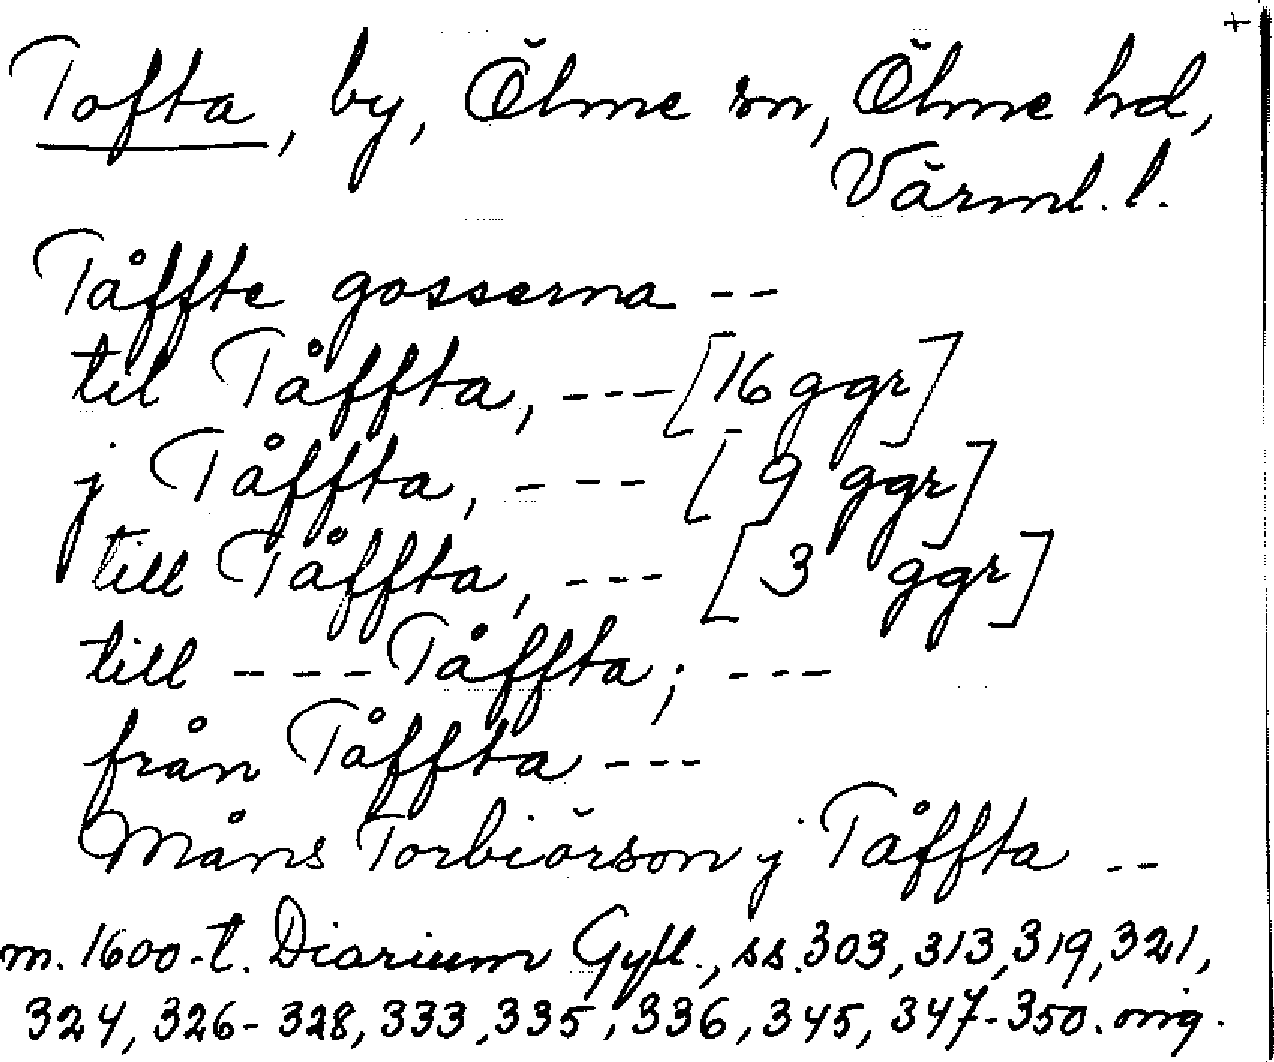 +
Tofta, by, Ölme sn, Ölme hd,
Värml. l.
Tåffte gosserna --
til Tåffta, --- [16 ggr]
j Tåffta, - --- [9 ggr]
till Tåffta, --- [3 ggr]
till --- Tåffta; ---
från Tåffta ---
Måns Torbiörson j Tåffta --
m. 1600-t. Diarium Gyll., ss. 303, 313, 319, 321,
324, 326-328, 333, 335, 336, 345, 347-350. orig.